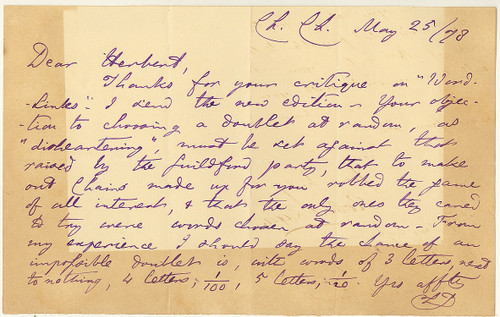 Ch. Ch. May 25/78
Dear Herbert,
Thanks for your critique on "Word-
-Links". I send the new edition. Your objec-
-tion to choosing a doublet at random, as
"disheartening", must be set against that
raised by the Guildford party, that to make
out Chains made up for you robbed the game
of all interest, & that the only ones they cared
to try were words chosen at random. From
my experience I should say the chance of an
impossible doublet is, with words of 3 letters, next
to nothing, 4 letters, 1/100, 5 letters, 1/20. Yrs affte
CLD